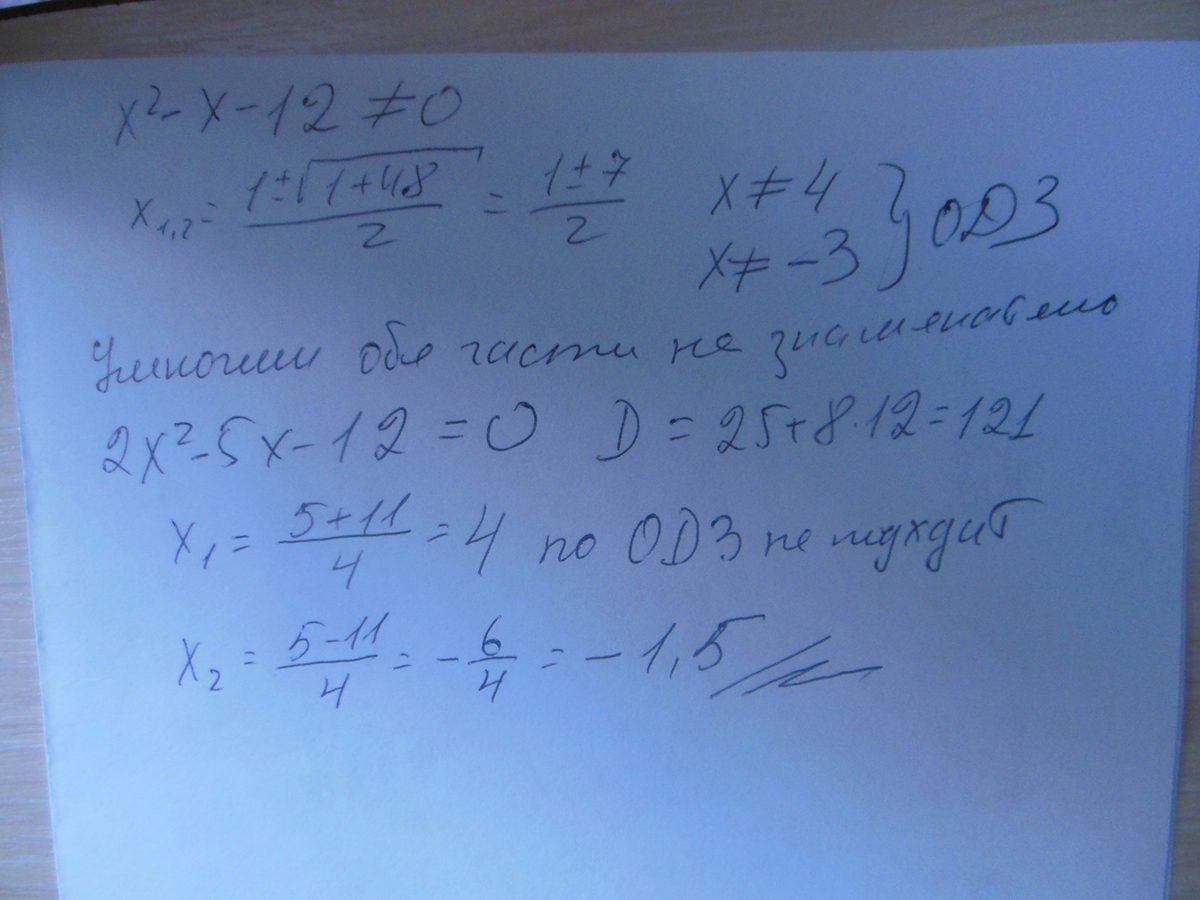 x² - x - 12 ≠ 0
x₁,₂ = (1 ± √(1 + 48)) / 2 = (1 ± 7) / 2   x ≠ 4
x ≠ -3 } ОДЗ
Умножим обе части на знаменатель
2x² - 5x - 12 = 0   D = 25 + 8·12 = 121
x₁ = (5 + 11) / 4 = 4 по ОДЗ не подходит
x₂ = (5 - 11) / 4 = - 6/4 = - 1,5